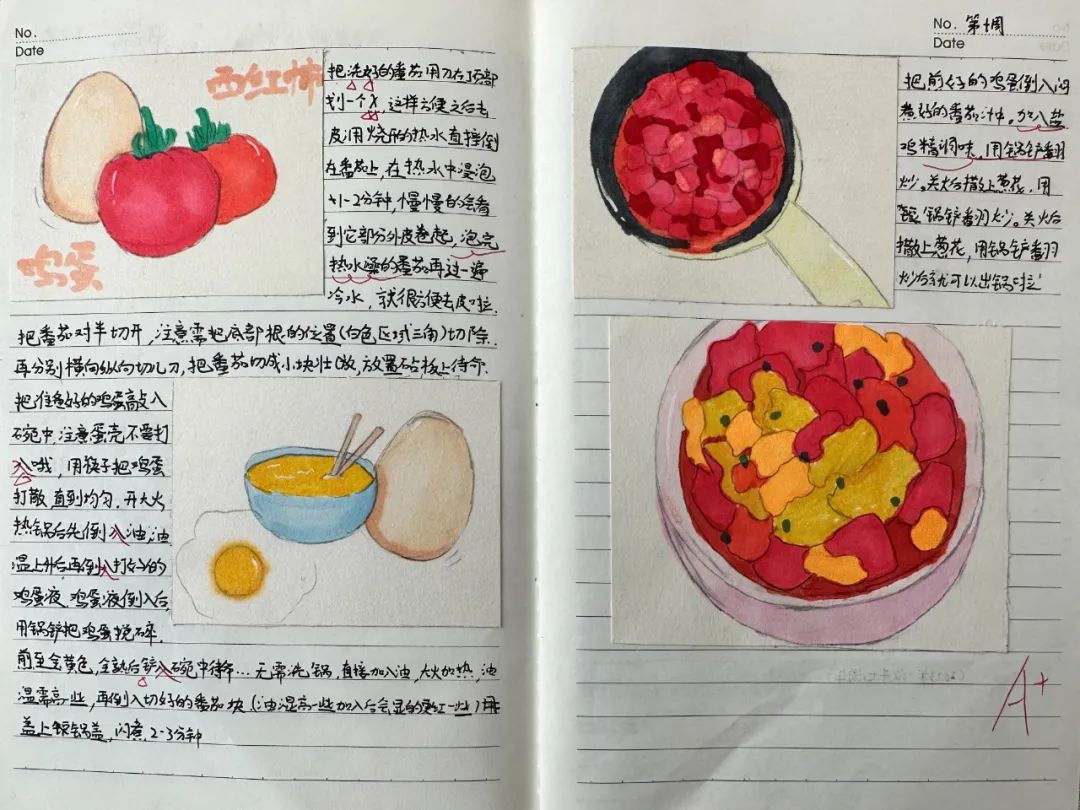 No.
Date
西红柿
鸡蛋
把洗好的番茄用刀在顶部
划一个X,这样方便之后去
皮用烧开的热水直接倒
在番茄上,在热水中浸泡
1-2分钟,慢慢的会看
到它部分外皮卷起,泡完
热水澡的番茄再过一遍
冷水,就很方便去皮啦.
把番茄对半切开,注意需把底部根的位置(白色区域三角)切除.
再分别横向纵向切几刀,把番茄切成小块状,放置砧板上待命.
把准备好的鸡蛋敲入
碗中,注意蛋壳不要打
入哦,用筷子把鸡蛋
打散直到均匀.开大火
热锅后先倒入油,油
温上升后再倒入打好的
鸡蛋液,鸡蛋液倒入后
用锅铲把鸡蛋搅碎.
煎至金黄色,全熟后铲入碗中待命...无需洗锅,直接加入油,大火加热,油
温需高一些,再倒入切好的番茄块(油温高一些加入后会显的更红一些)
盖上锅盖,闷煮,2-3分钟
No. 第1周
Date
把煎好的鸡蛋倒入闷
煮好的番茄汁中。加入盐
鸡精调味,用锅铲翻
炒。关火后撒上葱花,用
锅铲翻炒。关火后
撒上葱花,用锅铲翻
炒后就可以出锅啦
A+